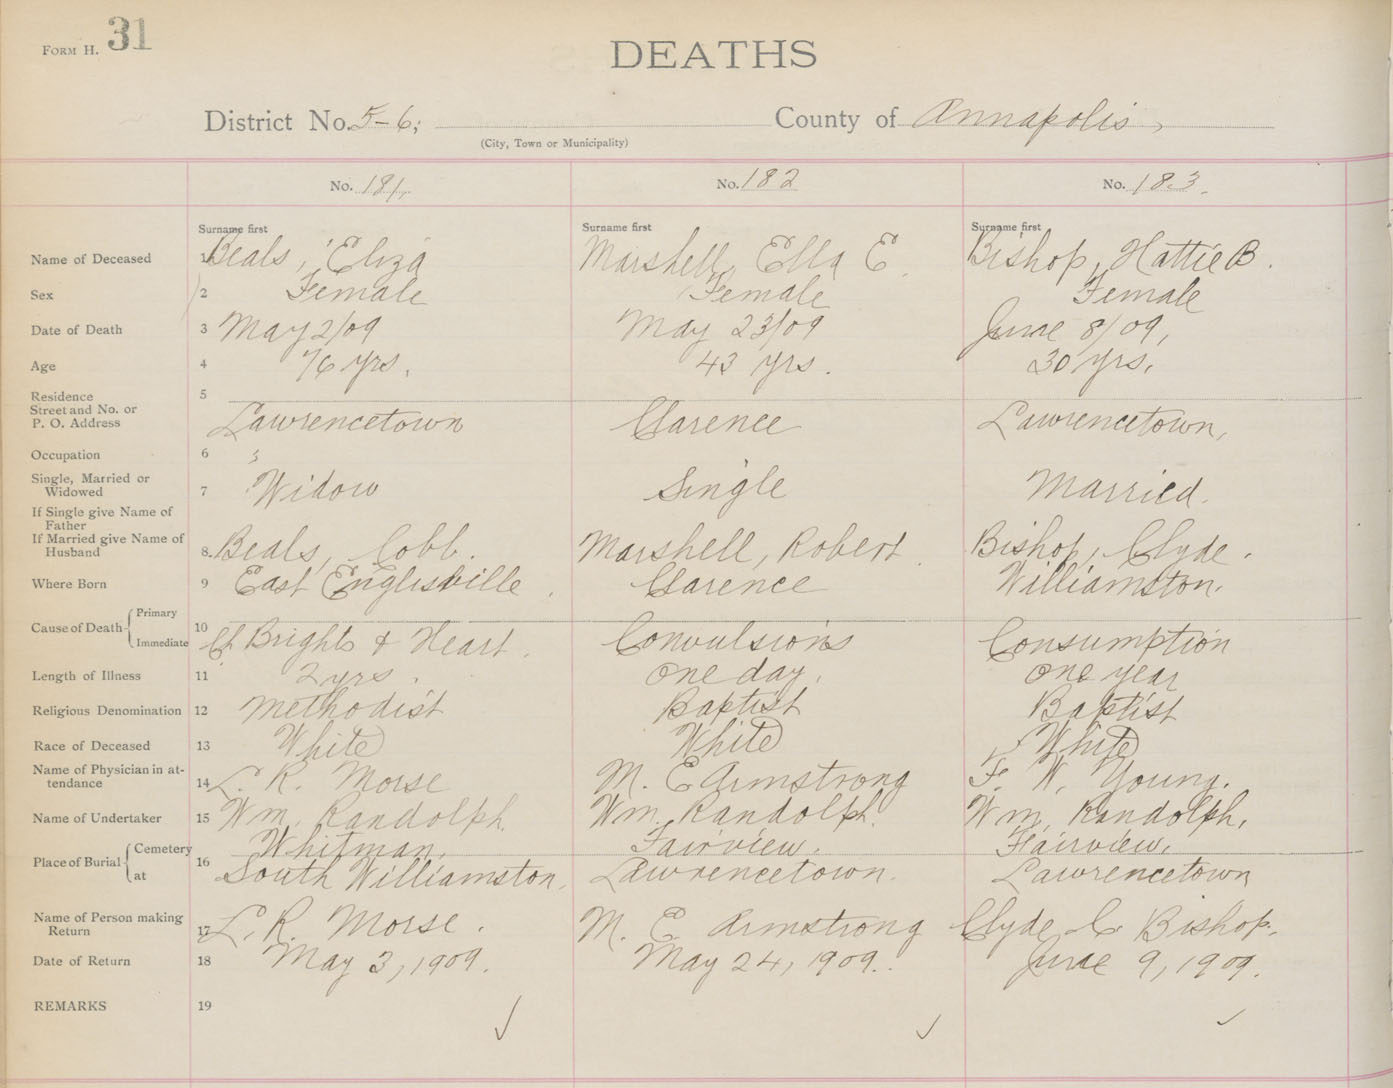 FORM H. 31
DEATHS
District No. 5-6; County of Annapolis,
(City, Town or Municipality)
No. 181, No. 182 No. 183.
Surname first Surname first Surname first
Name of Deceased 1 Beals, Eliza Marshell, Ella E. Bishop, Hattie B.
Sex 2 Female Female Female
Date of Death 3 May 2/09 May 23/09 June 8/09,
Age 4 76 yrs. 43 yrs. 30 yrs.
Residence 5
Street and No. or
P. O. Address Lawrencetown Clarence Lawrencetown,
Occupation 6
Single, Married or
Widowed 7 Widow Single Married.
If Single give Name of
Father
If Married give Name of
Husband 8. Beals, Cobb. Marshell, Robert. Bishop, Clyde.
Where Born 9 East Englisville. Clarence Williamston.
Cause of Death Primary 10
Immediate Ch Brights & Heart. Convulsions Consumption
Length of Illness 11 2 yrs. one day. one year
Religious Denomination 12 Methodist Baptist Baptist
Race of Deceased 13 White White White
Name of Physician in at-
tendance 14 L. R. Morse M. E Armstrong F. W. Young.
Name of Undertaker 15 Wm. Randolph. Wm. Randolph. Wm. Randolph,
Place of Burial Cemetery 16 Whitman, Fairview. Fairview,
at South Williamston. Lawrencetown. Lawrencetown
Name of Person making
Return 17 L. R. Morse. M. E. Armstrong Clyde C. Bishop.
Date of Return 18 May 3, 1909. May 24, 1909. June 9, 1909.
REMARKS 19